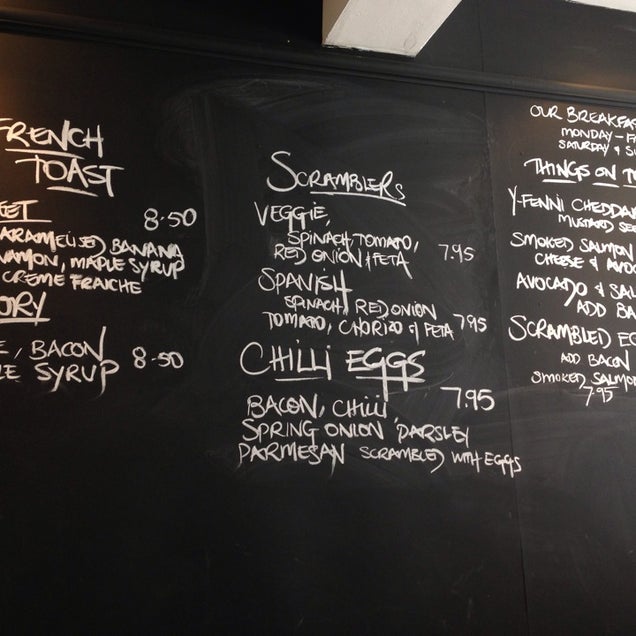 FRENCH
TOAST
8.50
CARAMELISED BANANA
CINNAMON, MAPLE SYRUP
CREME FRAICHE
, BACON
8.50
SYRUP
SCRAMBLERS
VEGGIE,
SPINACH, TOMATO,
RED ONION & FETA 7.95
SPANISH
SPINACH, RED ONION
TOMATO, CHORIZO & FETA 7.95
CHILLI EGGS
7.95
BACON, CHILLI
SPRING ONION PARSLEY
PARMESAN SCRAMBLED WITH EGGS
OUR BREAKFA
MONDAY - F
SATURDAY & S
THINGS ON T
Y-FENNI CHEDDA
MUSTARD SEE
SMOKED SALMON
CHEESE & AVO
AVOCADO & SAL
ADD BA
SCRAMBLED EG
ADD BACON
SMOKED SALMON
7.95